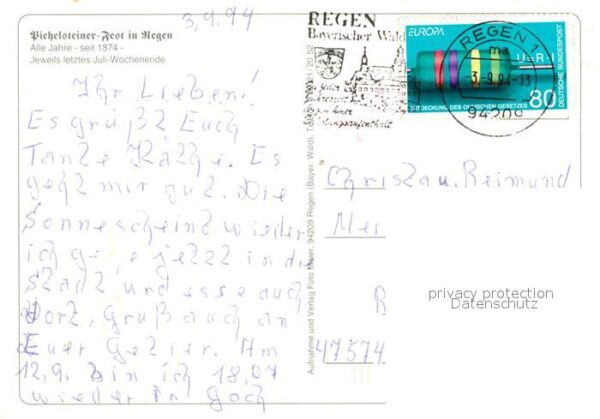 3.9.94
Pichelsteiner-Fest in Regen
Alle Jahre - seit 1874 -
Jeweils letztes Juli-Wochenende
Ihr Lieben!
Es grüßt Euch
Tante Käthe. Es
geht mir gut. Die
Sonne scheint wieder
ich gehe jetzt in die
Stadt und esse auch
dort. Gruß auch an
Euer Getier. Am
12.9. bin ich 18.07
wieder in Goch
Aufnahme und Verlag Foto Maier, 94209 Regen (Bayer. Wald),
REGEN
Bayerischer Wald
EUROPA
U=R·I
ENTDECKUNG DES OHMSCHEN GESETZES
80
DEUTSCHE BUNDESPOST
REGEN 1
ma
-3.-9.94-13
94209
Christa u. Reimund
Mer
R
47574
privacy protection
Datenschutz